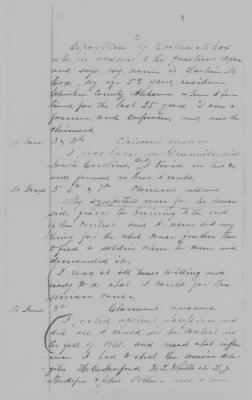 2
Deposition of Larkin M Cox
who in answer to the questions
and says my name is Larkin M
Cox, my age 52 years, residence
Cherokee County Alabama where I have
lived for the last 25 years, I am a
farmer and Carpenter, and am the
claimant
Claimant answers
I was born in Greenville
South Carolina I lived in this Co
and farmed as best I could
To Inter 5 6th & 7th Claimant answers
My sympathies were for the Union
side from the beginning to the end
of the contest and I never did any
thing for the rebel cause further than
to feed a soldier when he came and
demanded it.
I was at all times willing and
ready to do what I could for the
Union cause.
Claimant answers
I voted against secession and
did all I could in the Contest in
the fall of 1860. and used what influ
ence I had to elect the union dele
gates
& John Potter and I